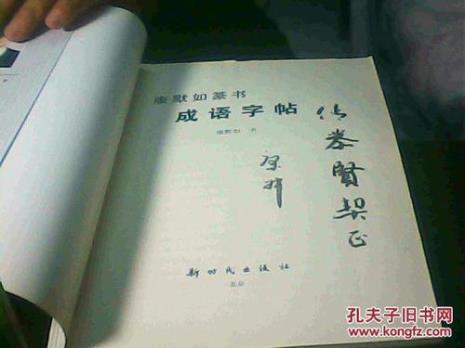 康默如篆书
成语字帖
康默如 书
贤契正
新时代出版社
·北京·
孔夫子旧书网
www.kongfz.com